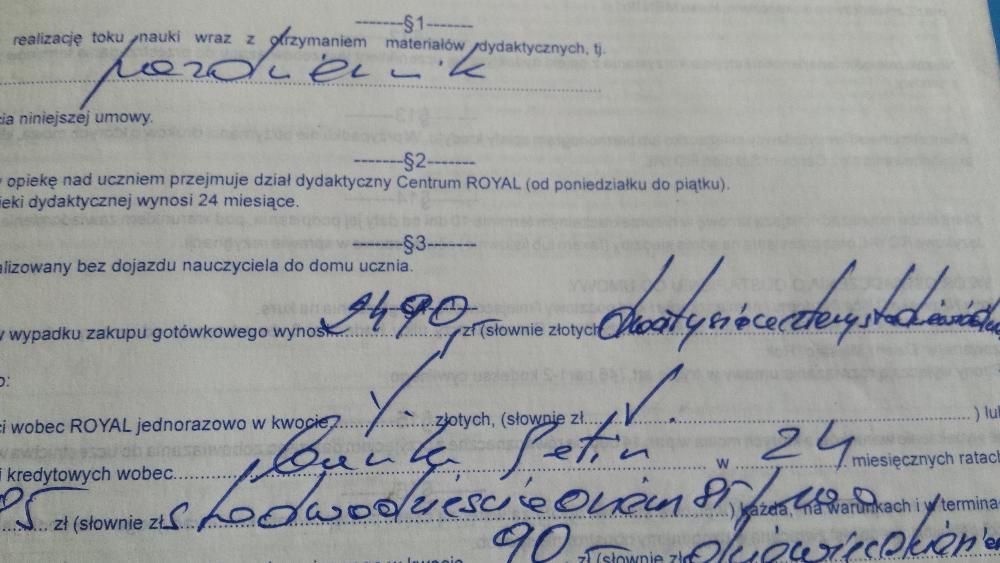 -------§1-------
realizację toku nauki wraz z otrzymaniem materiałów dydaktycznych, tj.
październik
cia niniejszej umowy.
-------§2-------
opiekę nad uczniem przejmuje dział dydaktyczny Centrum ROYAL (od poniedziałku do piątku).
ieki dydaktycznej wynosi 24 miesiące.
-------§3-------
alizowany bez dojazdu nauczyciela do domu ucznia.
w wypadku zakupu gotówkowego wynosi 2490 zł (słownie złotych dwatysiąceczterystadziewięćdzie
o:
ci wobec ROYAL jednorazowo w kwocie ........ złotych, (słownie zł ........ ) lub
i kredytowych wobec Banku Getin w 24 miesięcznych ratach
85 zł (słownie zł stodwadzieściaosiem 85/100 ) każda, na warunkach i w termina
w kwocie 90 zł (słownie zł